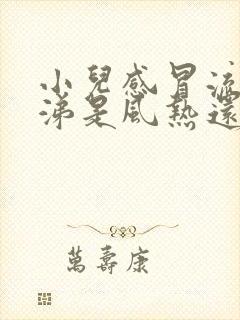 小兒感冒流
涕是風熱還
萬壽康